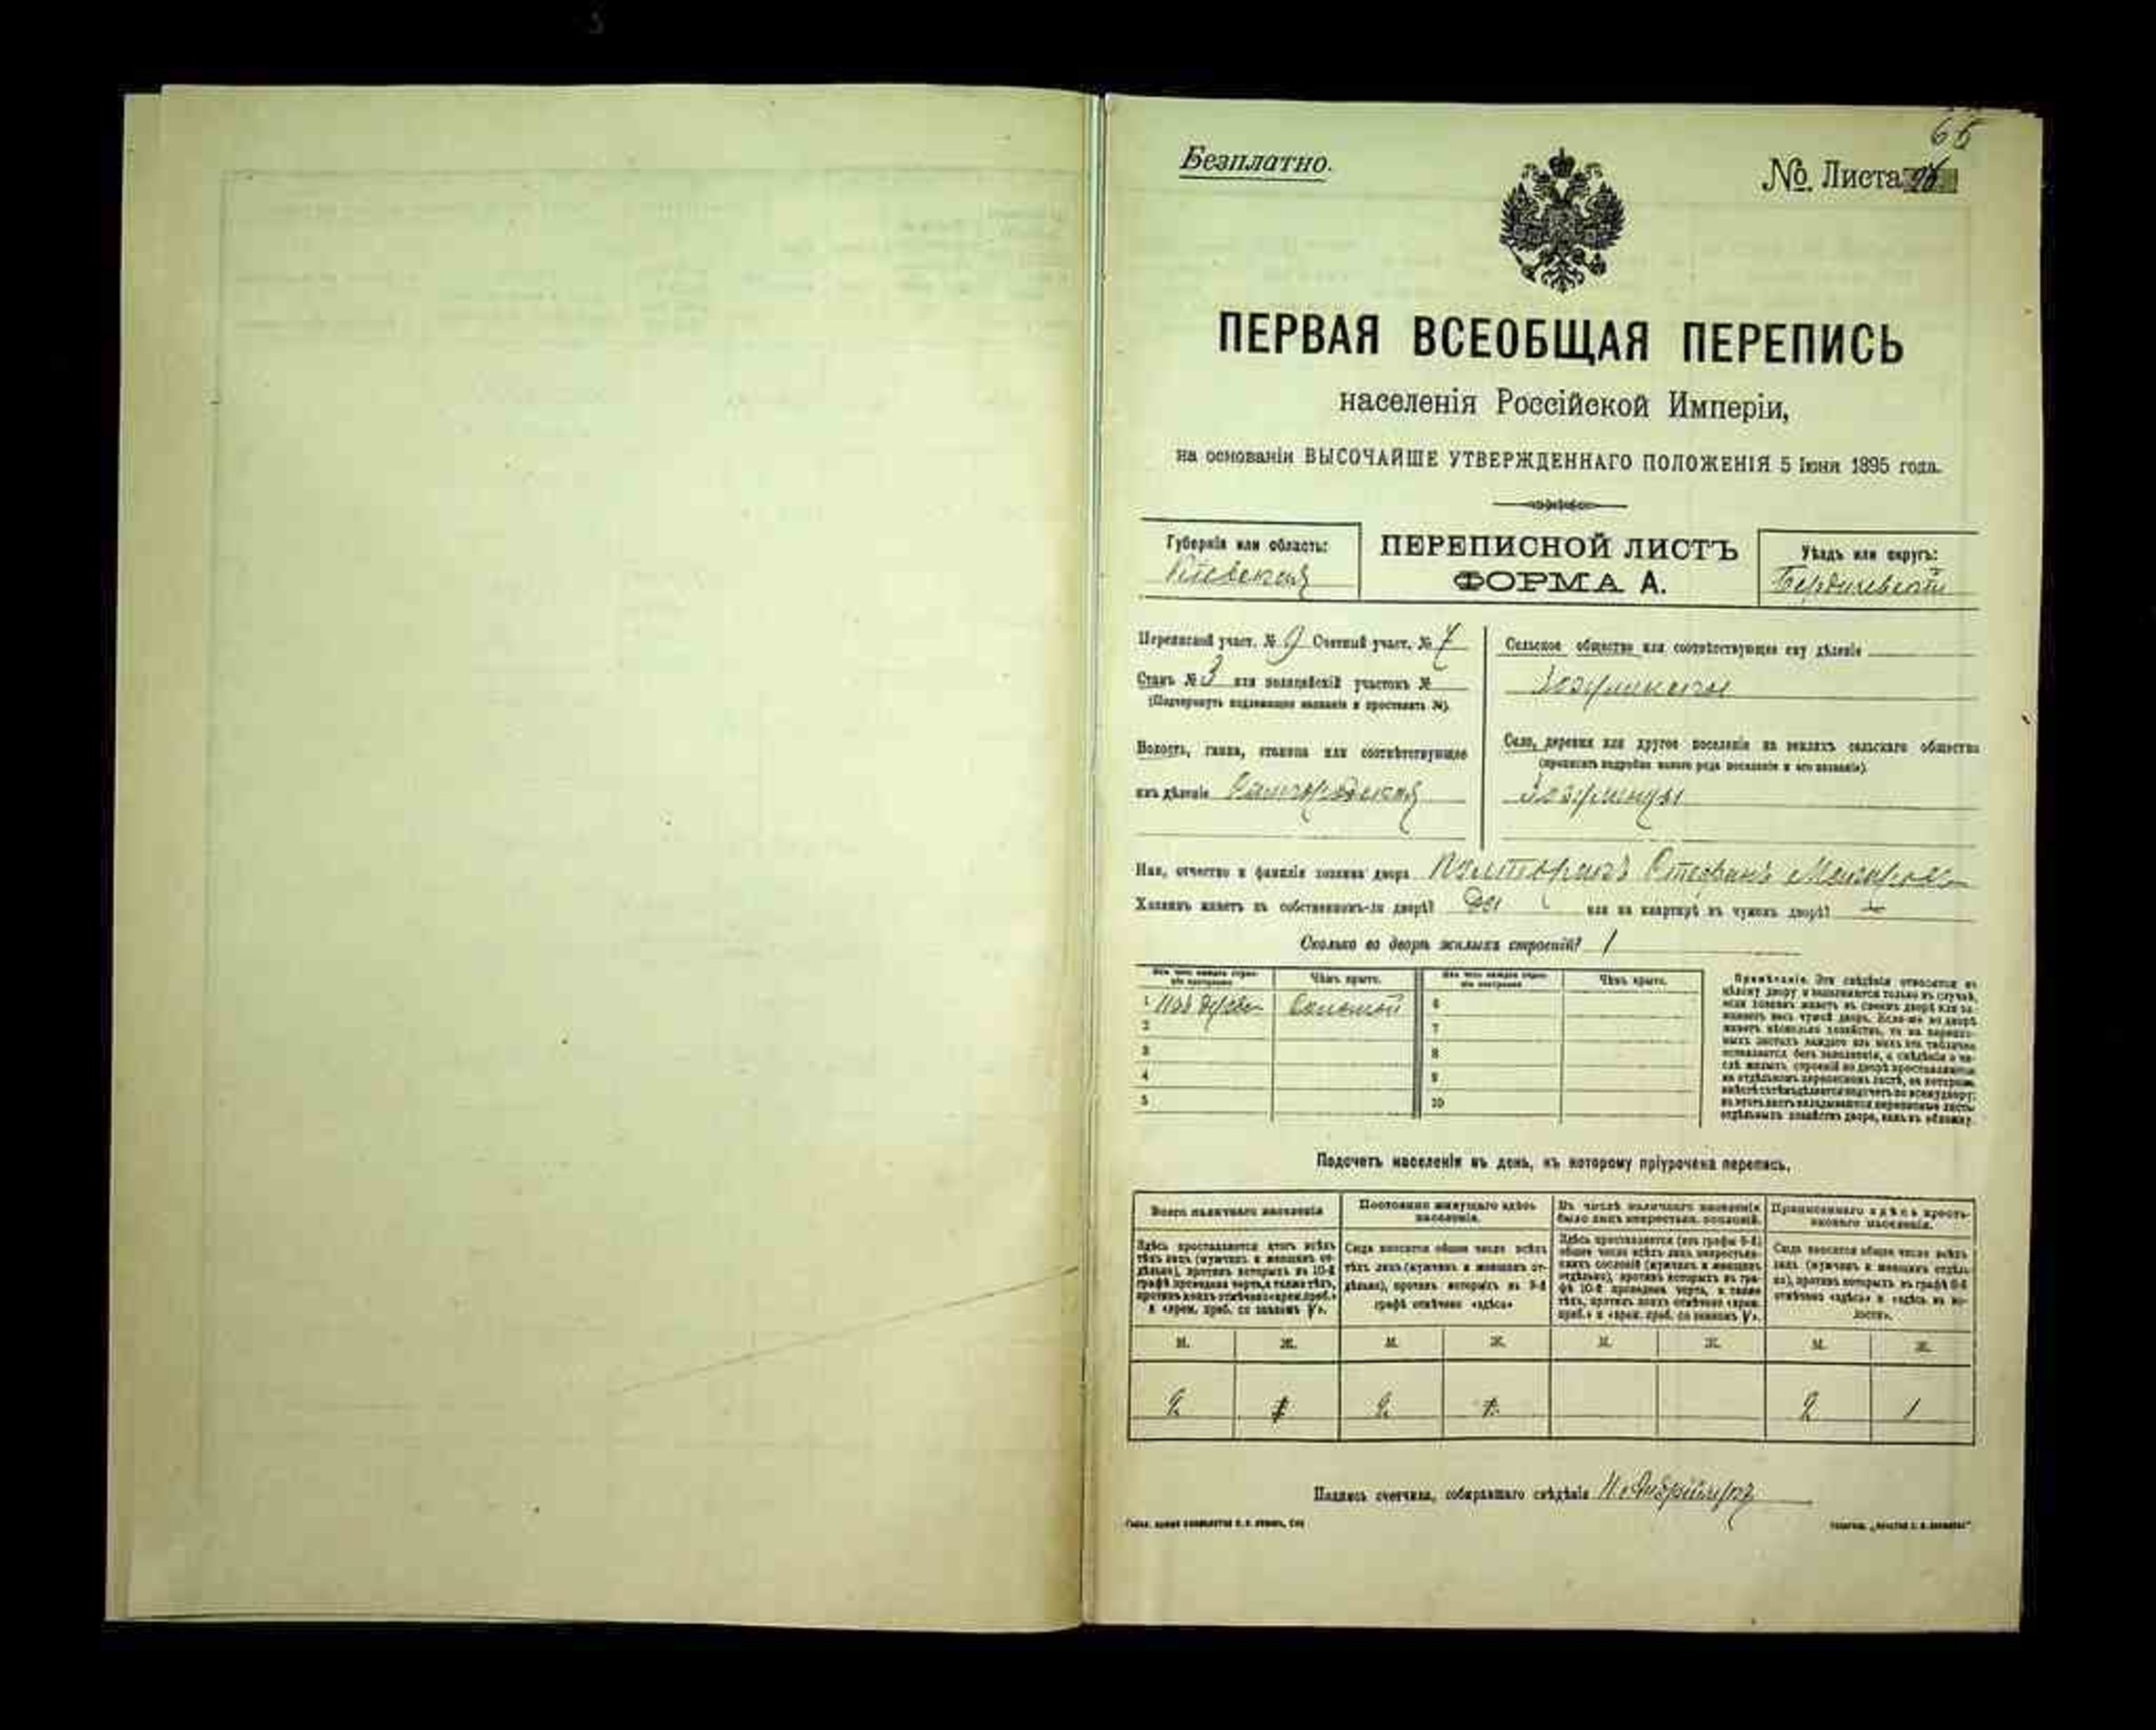 65
Безплатно.
№ Листа
ПЕРВАЯ ВСЕОБЩАЯ ПЕРЕПИСЬ
населенія Россійской Имперіи,
на основаніи ВЫСОЧАЙШЕ УТВЕРЖДЕННАГО ПОЛОЖЕНІЯ 5 Іюня 1895 года.
Губернія или область:
Кіевская
ПЕРЕПИСНОЙ ЛИСТЪ
ФОРМА А.
Уѣздъ или округъ:
Бердичевскій
Переписной участ. № 9 Счетный участ. № 7
Станъ № 3 или полицейскій участокъ №
(Подчеркнуть подлежащее названіе и проставить №).
Волость, гмина, станица или соотвѣтствующее
имъ дѣленіе
Сельское общество или соотвѣтствующее ему дѣленіе
Село, деревня или другое поселеніе на земляхъ сельскаго общества
(прописать подробно какого рода поселеніе и его названіе).
Имя, отчество и фамилія хозяина двора
Хозяинъ живетъ въ собственномъ-ли дворѣ? Да или на квартирѣ въ чужомъ дворѣ?
Сколько во дворѣ жилыхъ строеній? 1
Изъ чего каждое строеніе построено Чѣмъ крыто. Изъ чего каждое строеніе построено Чѣмъ крыто.
1 Соломой 6
2 7
3 8
4 9
5 10
Примѣчаніе. Эти свѣдѣнія относятся къ
цѣлому двору и заполняются только въ случаѣ,
если хозяинъ живетъ въ своемъ дворѣ или за-
нимаетъ весь чужой дворъ. Если-же во дворѣ
живетъ нѣсколько хозяйствъ, то на перепис-
ныхъ листахъ каждаго изъ нихъ эта табличка
оставляется безъ заполненія, а свѣдѣнія о чи-
слѣ жилыхъ строеній во дворѣ проставляются
на отдѣльномъ переписномъ листѣ, на которомъ
въ этотъ листъ вкладываются переписные листы
отдѣльныхъ хозяйствъ двора, какъ въ обложку.
Подсчетъ населенія въ день, къ которому пріурочена перепись.
Всего наличнаго населенія
Здѣсь проставляется итогъ всѣхъ
тѣхъ лицъ (мужчинъ и женщинъ от-
дѣльно), противъ которыхъ въ 10-й
графѣ проведена черта, а также тѣхъ,
противъ коихъ отмѣчено «врем. преб.»
и «врем. преб. со знакомъ V».
Постоянно живущаго здѣсь
населенія.
Сюда вносится общее число всѣхъ
тѣхъ лицъ (мужчинъ и женщинъ от-
дѣльно), противъ которыхъ въ 9-й
графѣ отмѣчено «здѣсь»
Въ числѣ наличнаго населенія
было лицъ некрестьян. сословій.
Здѣсь проставляется (изъ графы 6-й)
общее число всѣхъ лицъ некрестьян-
скихъ сословій (мужчинъ и женщинъ
отдѣльно), противъ которыхъ въ гра-
фѣ 10-й проведена черта, а также
тѣхъ, противъ коихъ отмѣчено «врем.
преб.» и «врем. преб. со знакомъ V».
Приписаннаго здѣсь кресть-
янскаго населенія.
Сюда вносится общее число всѣхъ
лицъ (мужчинъ и женщинъ отдѣль-
но), противъ которыхъ въ графѣ 8-й
отмѣчено «здѣсь» и «здѣсь въ во-
лости».
М. Ж. М. Ж. М. Ж. М. Ж.
2 1 2 1 2 1
Подпись счетчика, собиравшаго свѣдѣнія